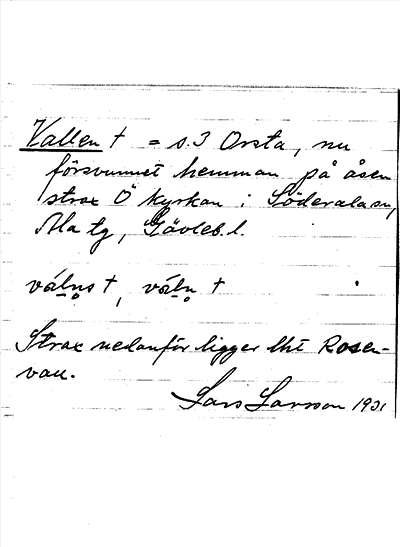 Vallen † = s. 3 Orsta, nu
försvunnet hemman på åsen
strax Ö kyrkan i Söderala sn,
Ala tg, Gävleb. l.
vál̥ns †, vál̥n †
Strax nedanför ligger lht Rosen-
vall.
Lars Larsson 1931